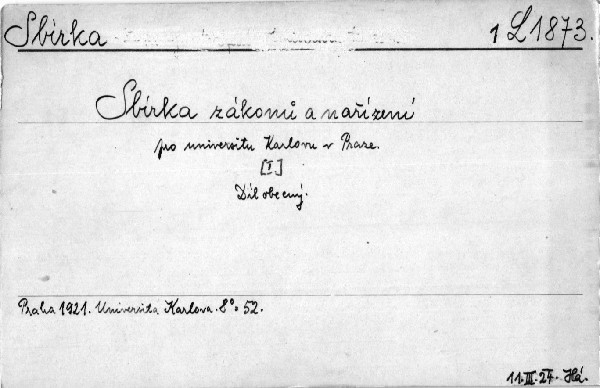 Sbírka 1 L 1873.
Sbírka zákonů a nařízení
pro universitu Karlovu v Praze.
[I]
Díl obecný.
Praha 1921. Universita Karlova. 8° 52.
11.III.27. Há.